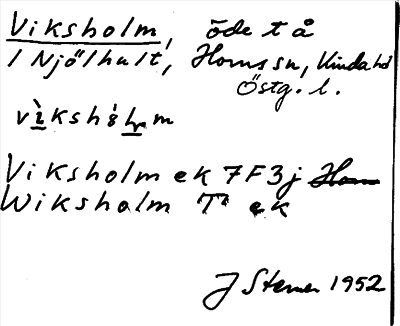 Viksholm, öde t å
i Njölhult, Horns sn, Kinda hd
Östg. l.
vìkshòlm
Viksholm ek 7F3j Horn
Wiksholm T ek
J Stemer 1952